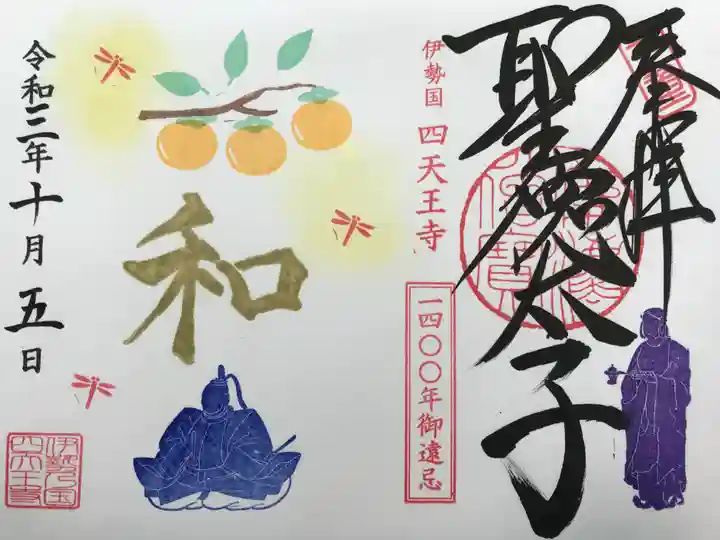 奉拝
聖徳太子
伊勢国 四天王寺
一四〇〇年御遠忌
和
令和三年十月五日
伊勢乃国
四天王寺